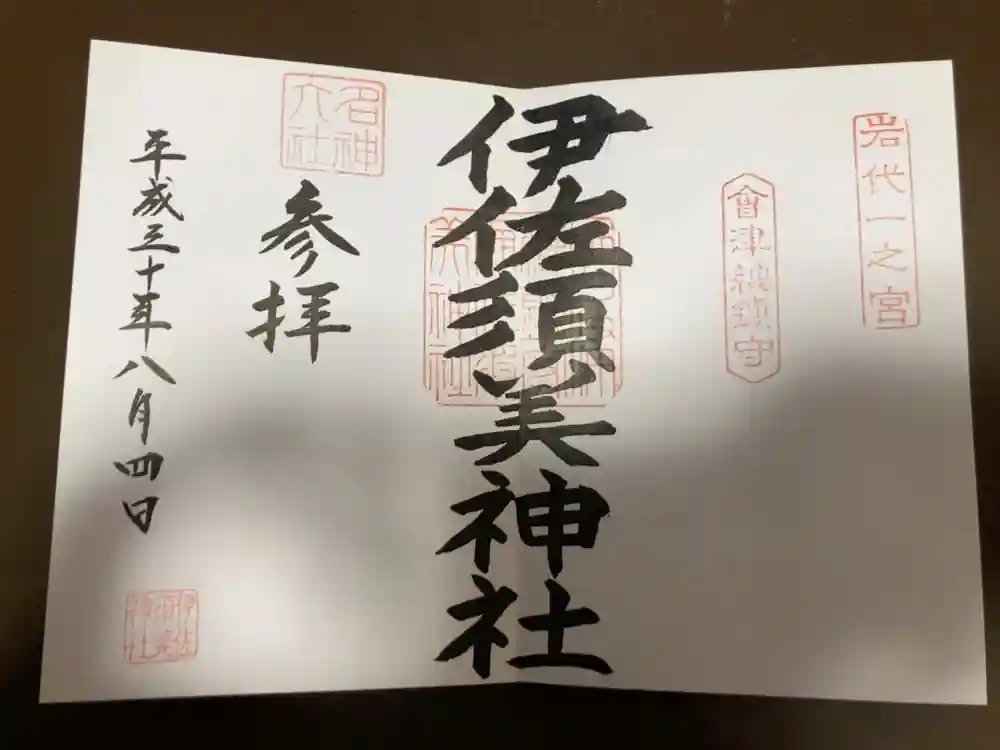 岩代一之宮
會津總鎮守
伊佐須美神社
名神
大社
参拝
平成三十年八月四日
伊佐
須美
神社